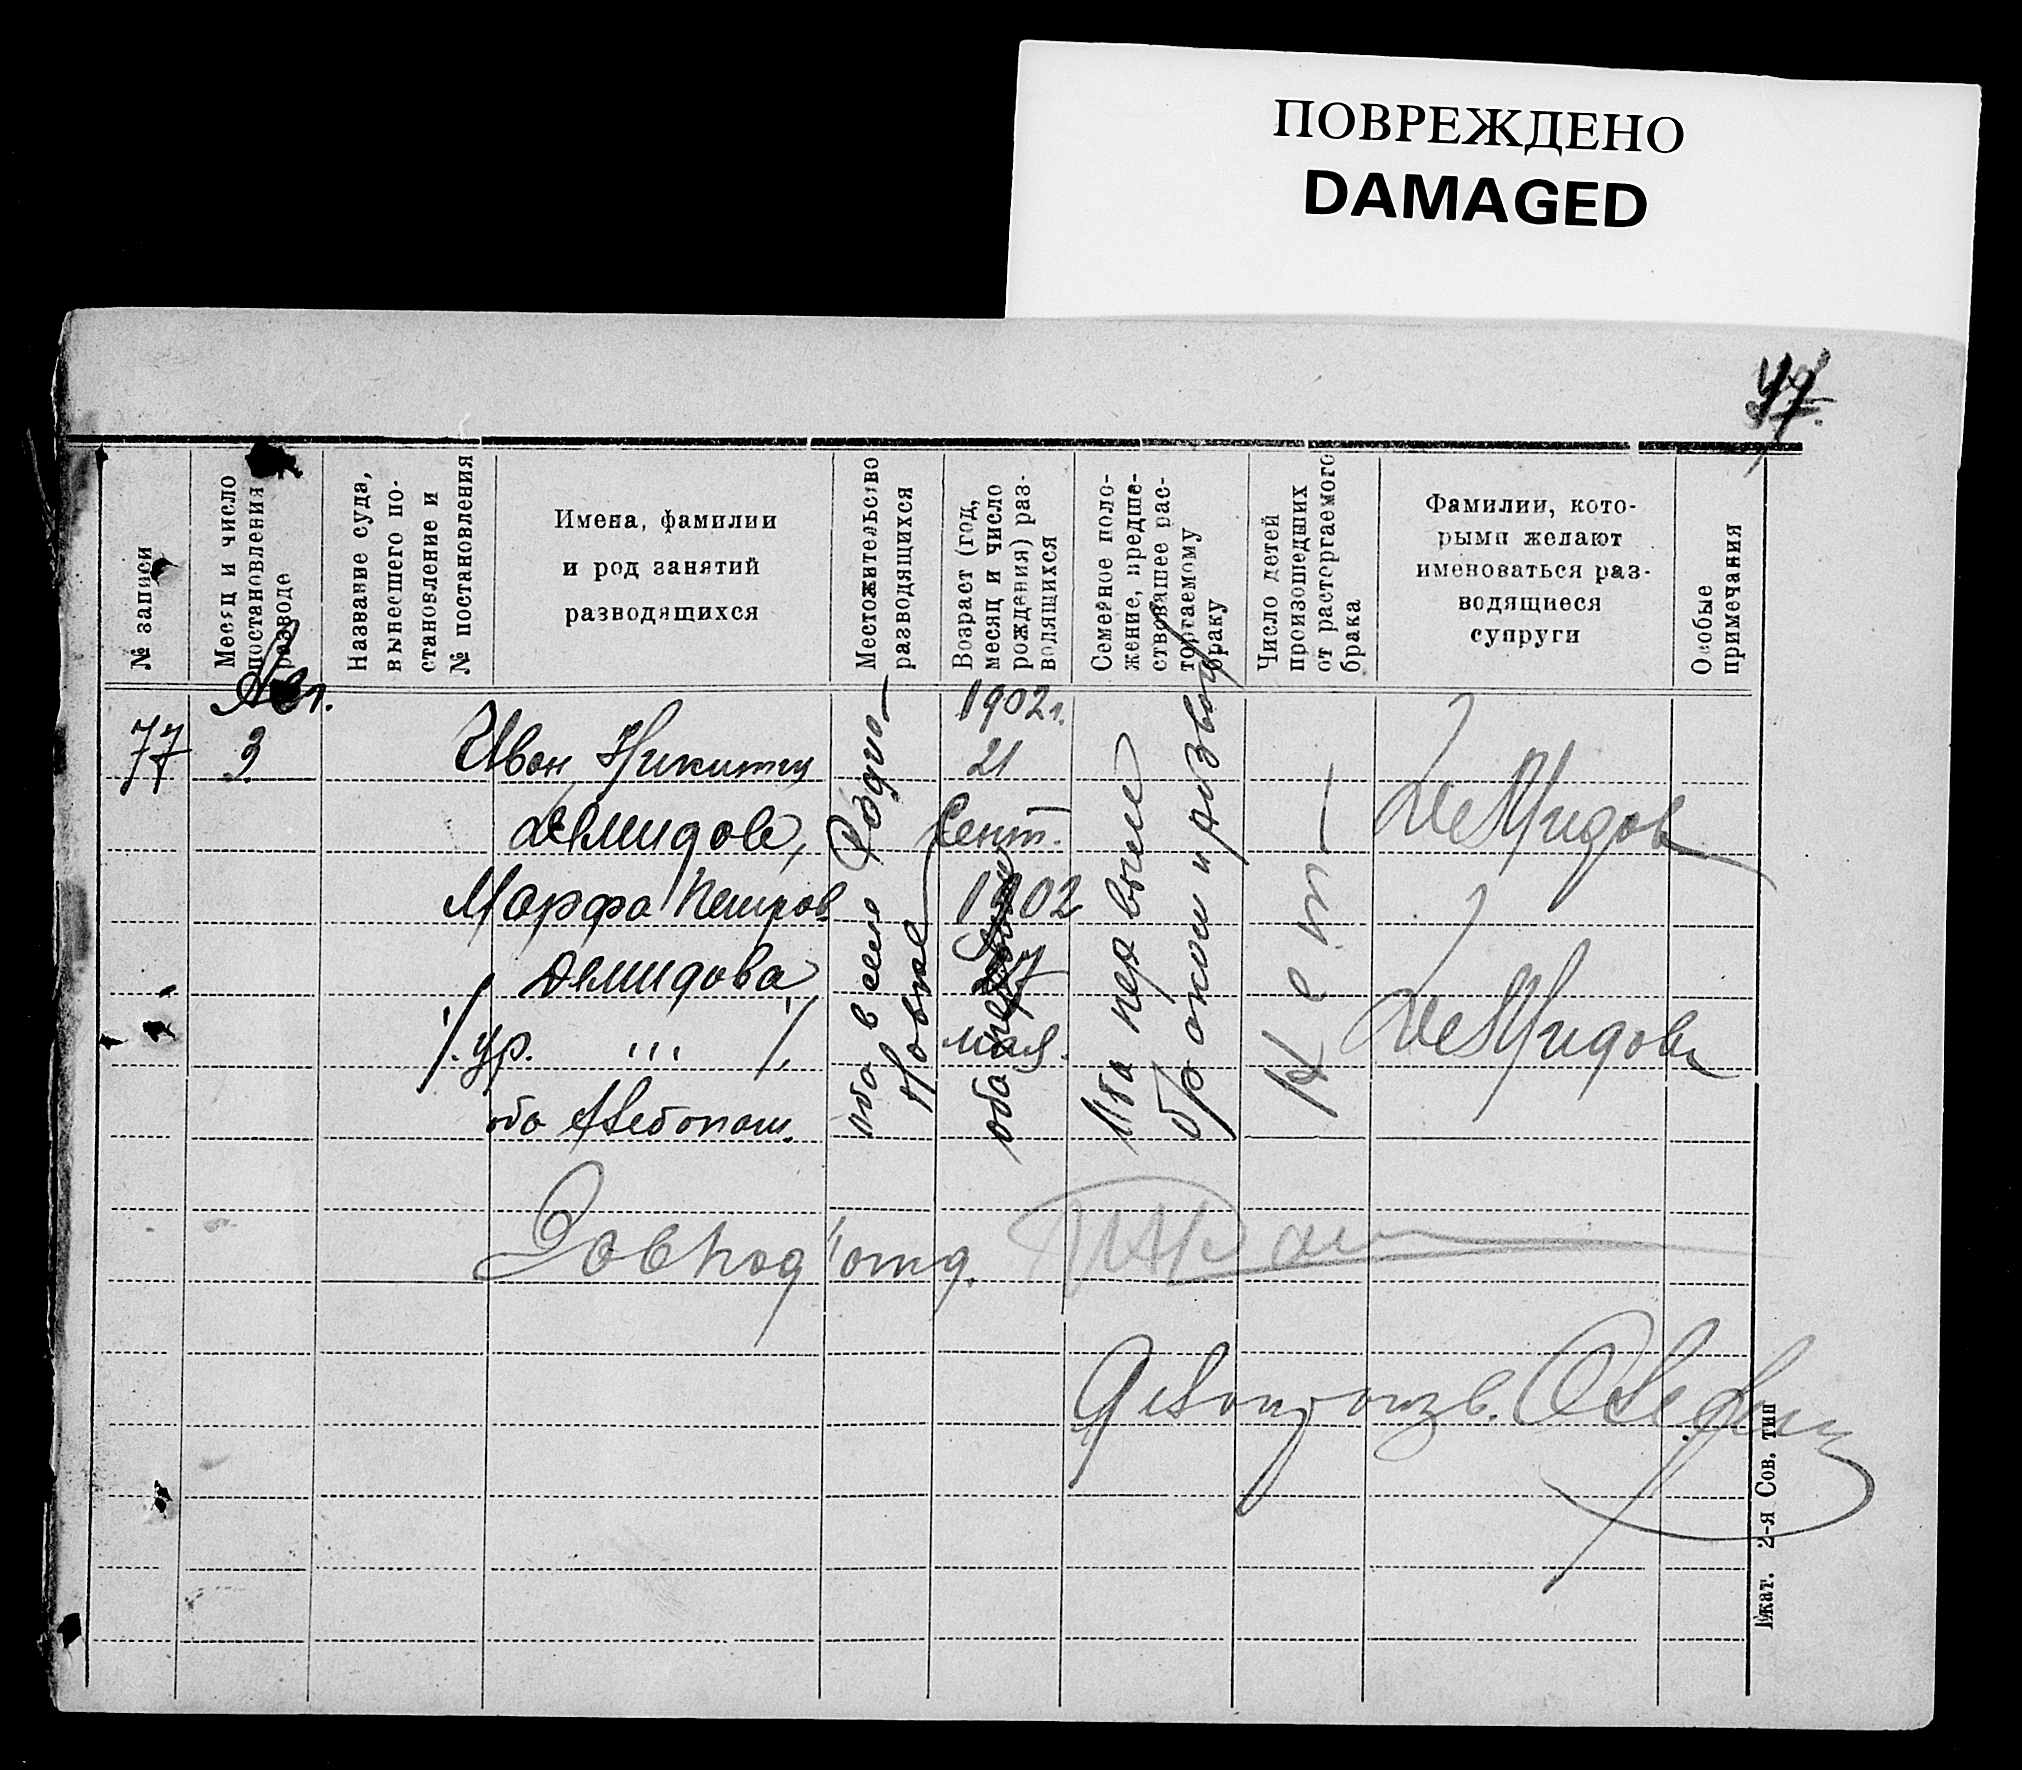 ПОВРЕЖДЕНО
DAMAGED
77.
№ записи
Месяц и число
постановления
разводе
Название суда,
вынесшего по-
становление и
№ постановления
Имена, фамилии
и род занятий
разводящихся
Местожительство
разводящихся
Возраст (год,
месяц и число
рождения) раз-
водящихся
Семейное поло-
жение, предше-
ствовавшее рас-
торгаемому
браку
Число детей
происшедших
от расторгаемого
брака
Фамилии, кото-
рыми желают
именоваться раз-
водящиеся
супруги
Особые
примечания
77
3
Иван Никитич
Демидов,
Марфа Петров.
Демидова
/. ур. ''' /.
оба хлебопаш.
оба в селе Родио-
новке
1902 г.
21
Сент.
1902
27
мая.
оба первыми
браком и развод
Нет
Демидов
Демидова
Зав подотд.
Делопроизв.
2-я Сов. тип